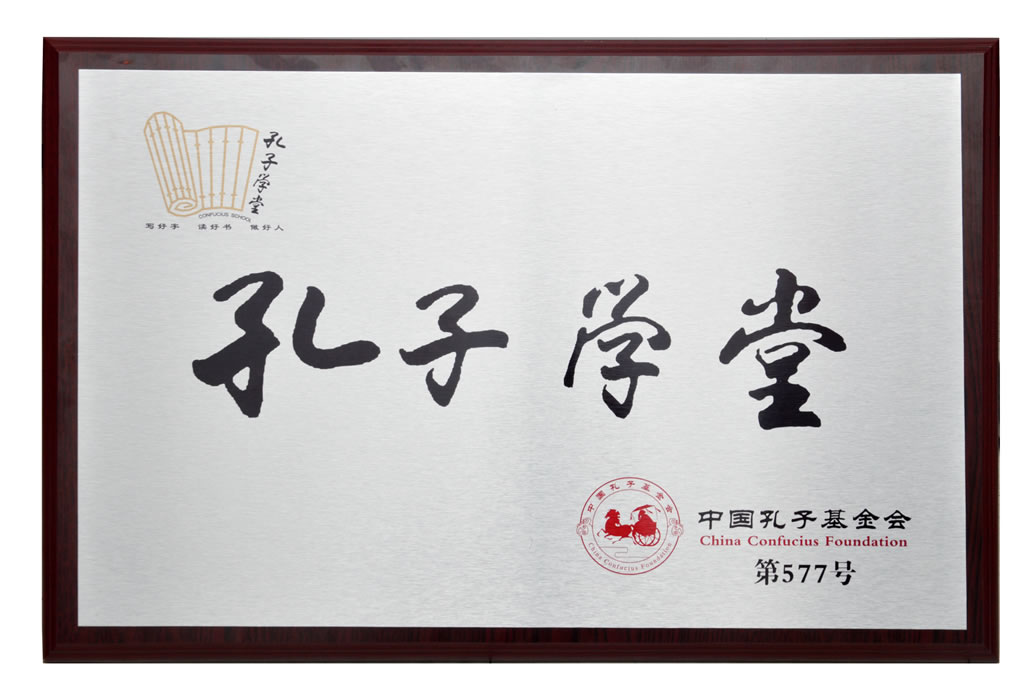 孔子学堂
CONFUCIUS SCHOOL
写好字 读好书 做好人
孔子学堂
中国孔子基金会
China Confucius Foundation
中国孔子基金会
China Confucius Foundation
第577号